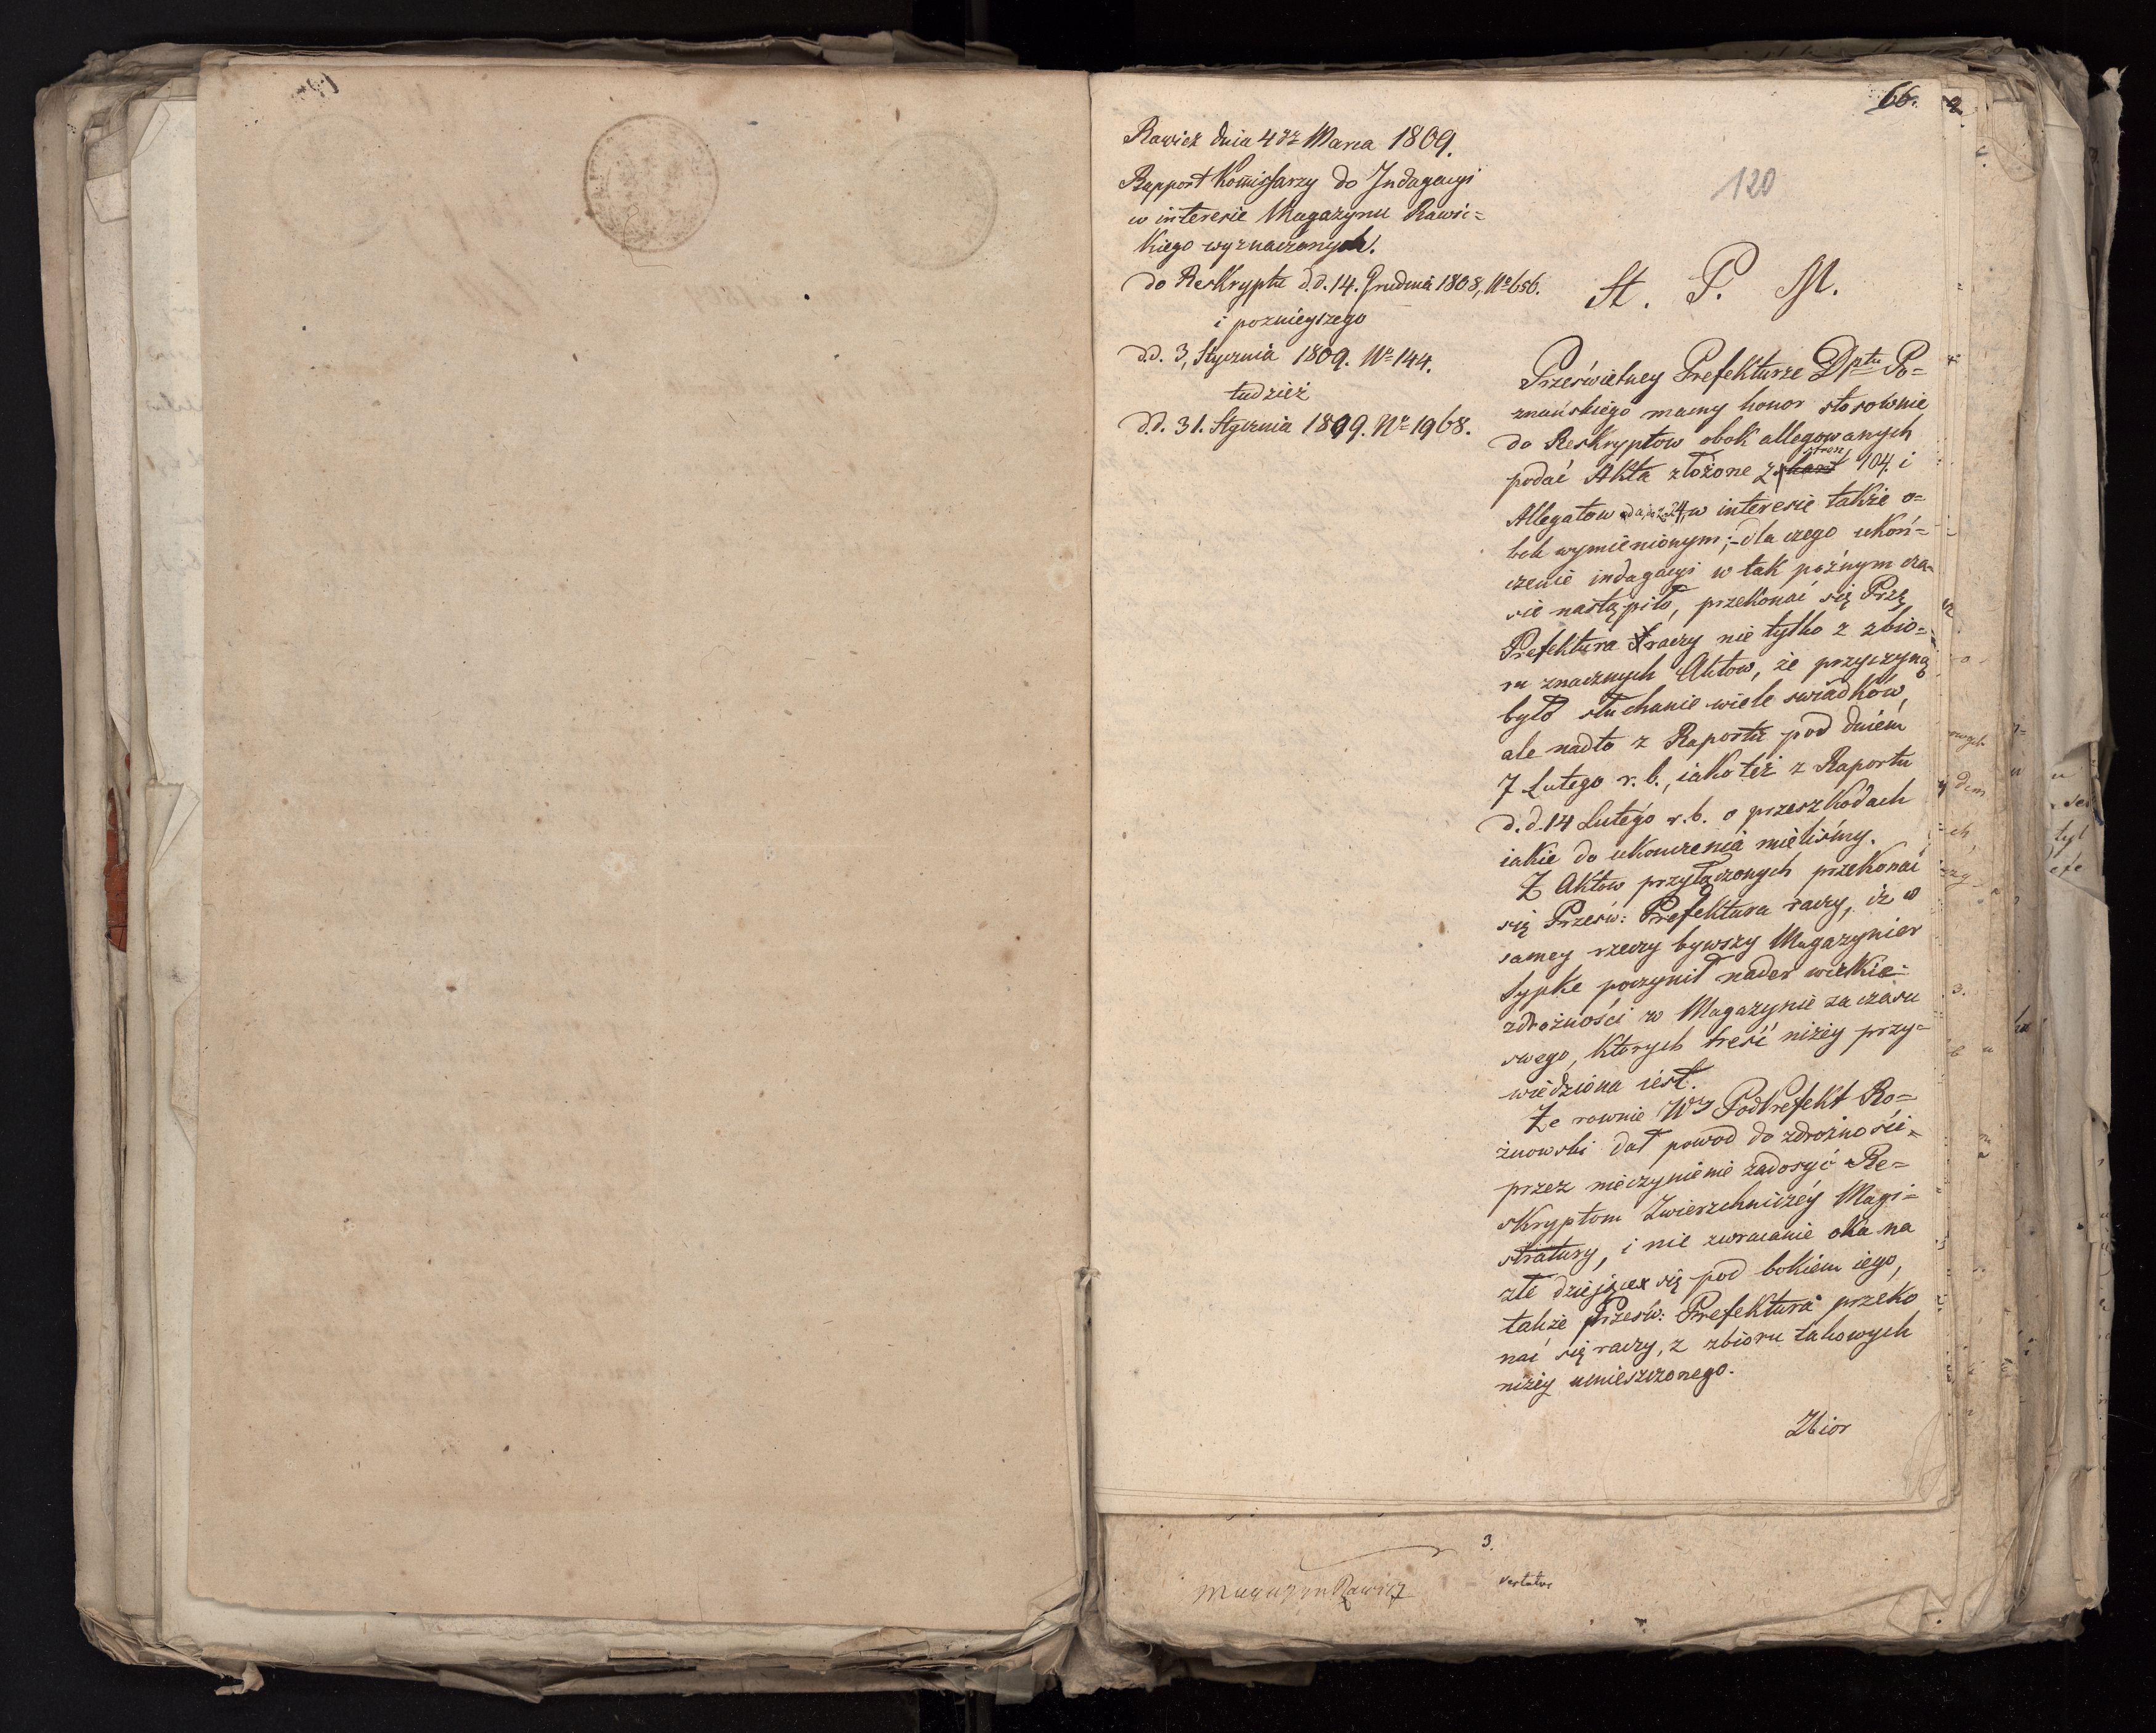 66.
120
Rawicz dnia 4go Marca 1809.
Rapport Kommissarzy do Indagacyi
w interesie Magazynu Rawic=
kiego wyznaczonych.
do Reskryptu d.d. 14. Grudnia 1808, No 656.
i poznieyszego
d.d. 3, Stycznia 1809. No 144.
tudzież
d.d. 31. Stycznia 1809. No 1968.
Prześwietney Prefekturze Dptu Po=
znańskiego mamy honor stosownie
do Reskryptow obok allegowanych
stron,
podać Akta złożone z 104. i
Allegatow w interesie także o=
bok wymienionym;- dla czego ukoń=
czenie indagacyi w tak pożnym cza=
sie nastąpiło, przekonać się Prze
Prefektura raczy nie tylko z zbio=
ru znacznych Aktow, że przyczyną
było słuchanie wiele swiadków,
ale nadto z Raportu pod dniem
7 Lutego r.b., iako też z Raportu
d.d. 14 Lutego r.b. o przeszkodach
iakie do ukonczenia mieliśmy.
Z Aktow przyłączonych przekonać
się Przesw: Prefektura raczy, iż w
samey rzeczy bywszy Magazynier
Sypke poczynił nader wielkie
zdrożności w Magazynie za czasu
swego, ktorych treść niżey przy=
wiedziona iest.
Że rownie Wy PodPrefekt Ro=
żnowski dał powod do zdrożności=
przez nieczynienie zadosyć Re=
skryptom Zwierzchniczéy Magi=
stratury, i nie zwracanie oka na
złe dziejące się pod bokiem iego,
także Przesw: Prefektura przeko
nać się raczy, z zbioru takowych
niżey umieszczonego.
Zbior
3.
Magazyn Rawicz